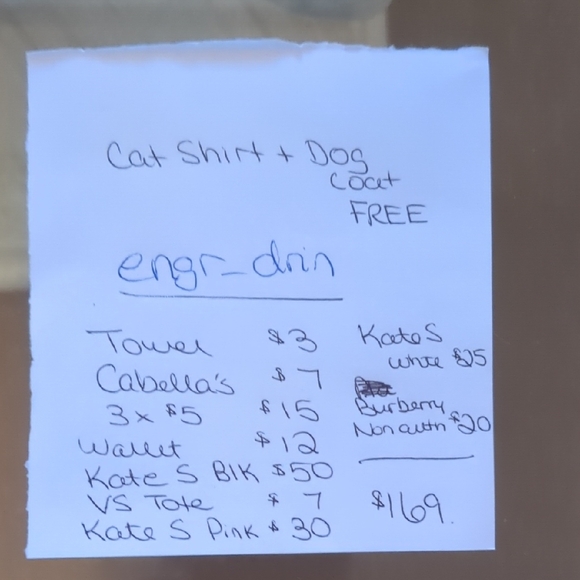 Cat Shirt + Dog
Coat
FREE
engr_drin
Towel $3
Cabella's $7
3 x $5 $15
Wallet $12
Kate S Blk $50
VS Tote $7
Kate S Pink $30
Kate S
white $25
Burberry
Non auth $20
$169.